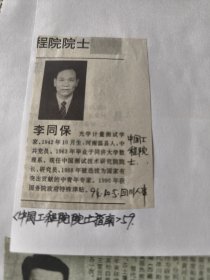 程院院士
李同保 光学计量测试学
家。1942年10月生，河南温县人。中
共党员。1965年毕业于同济大学数
理系。现任中国测试技术研究院院
长、研究员。1988年被选为国家有
突出贡献的中青年专家。1990年获
国务院政府特殊津贴。
中国工
程院
院士
《中国工程院院士指南》59.